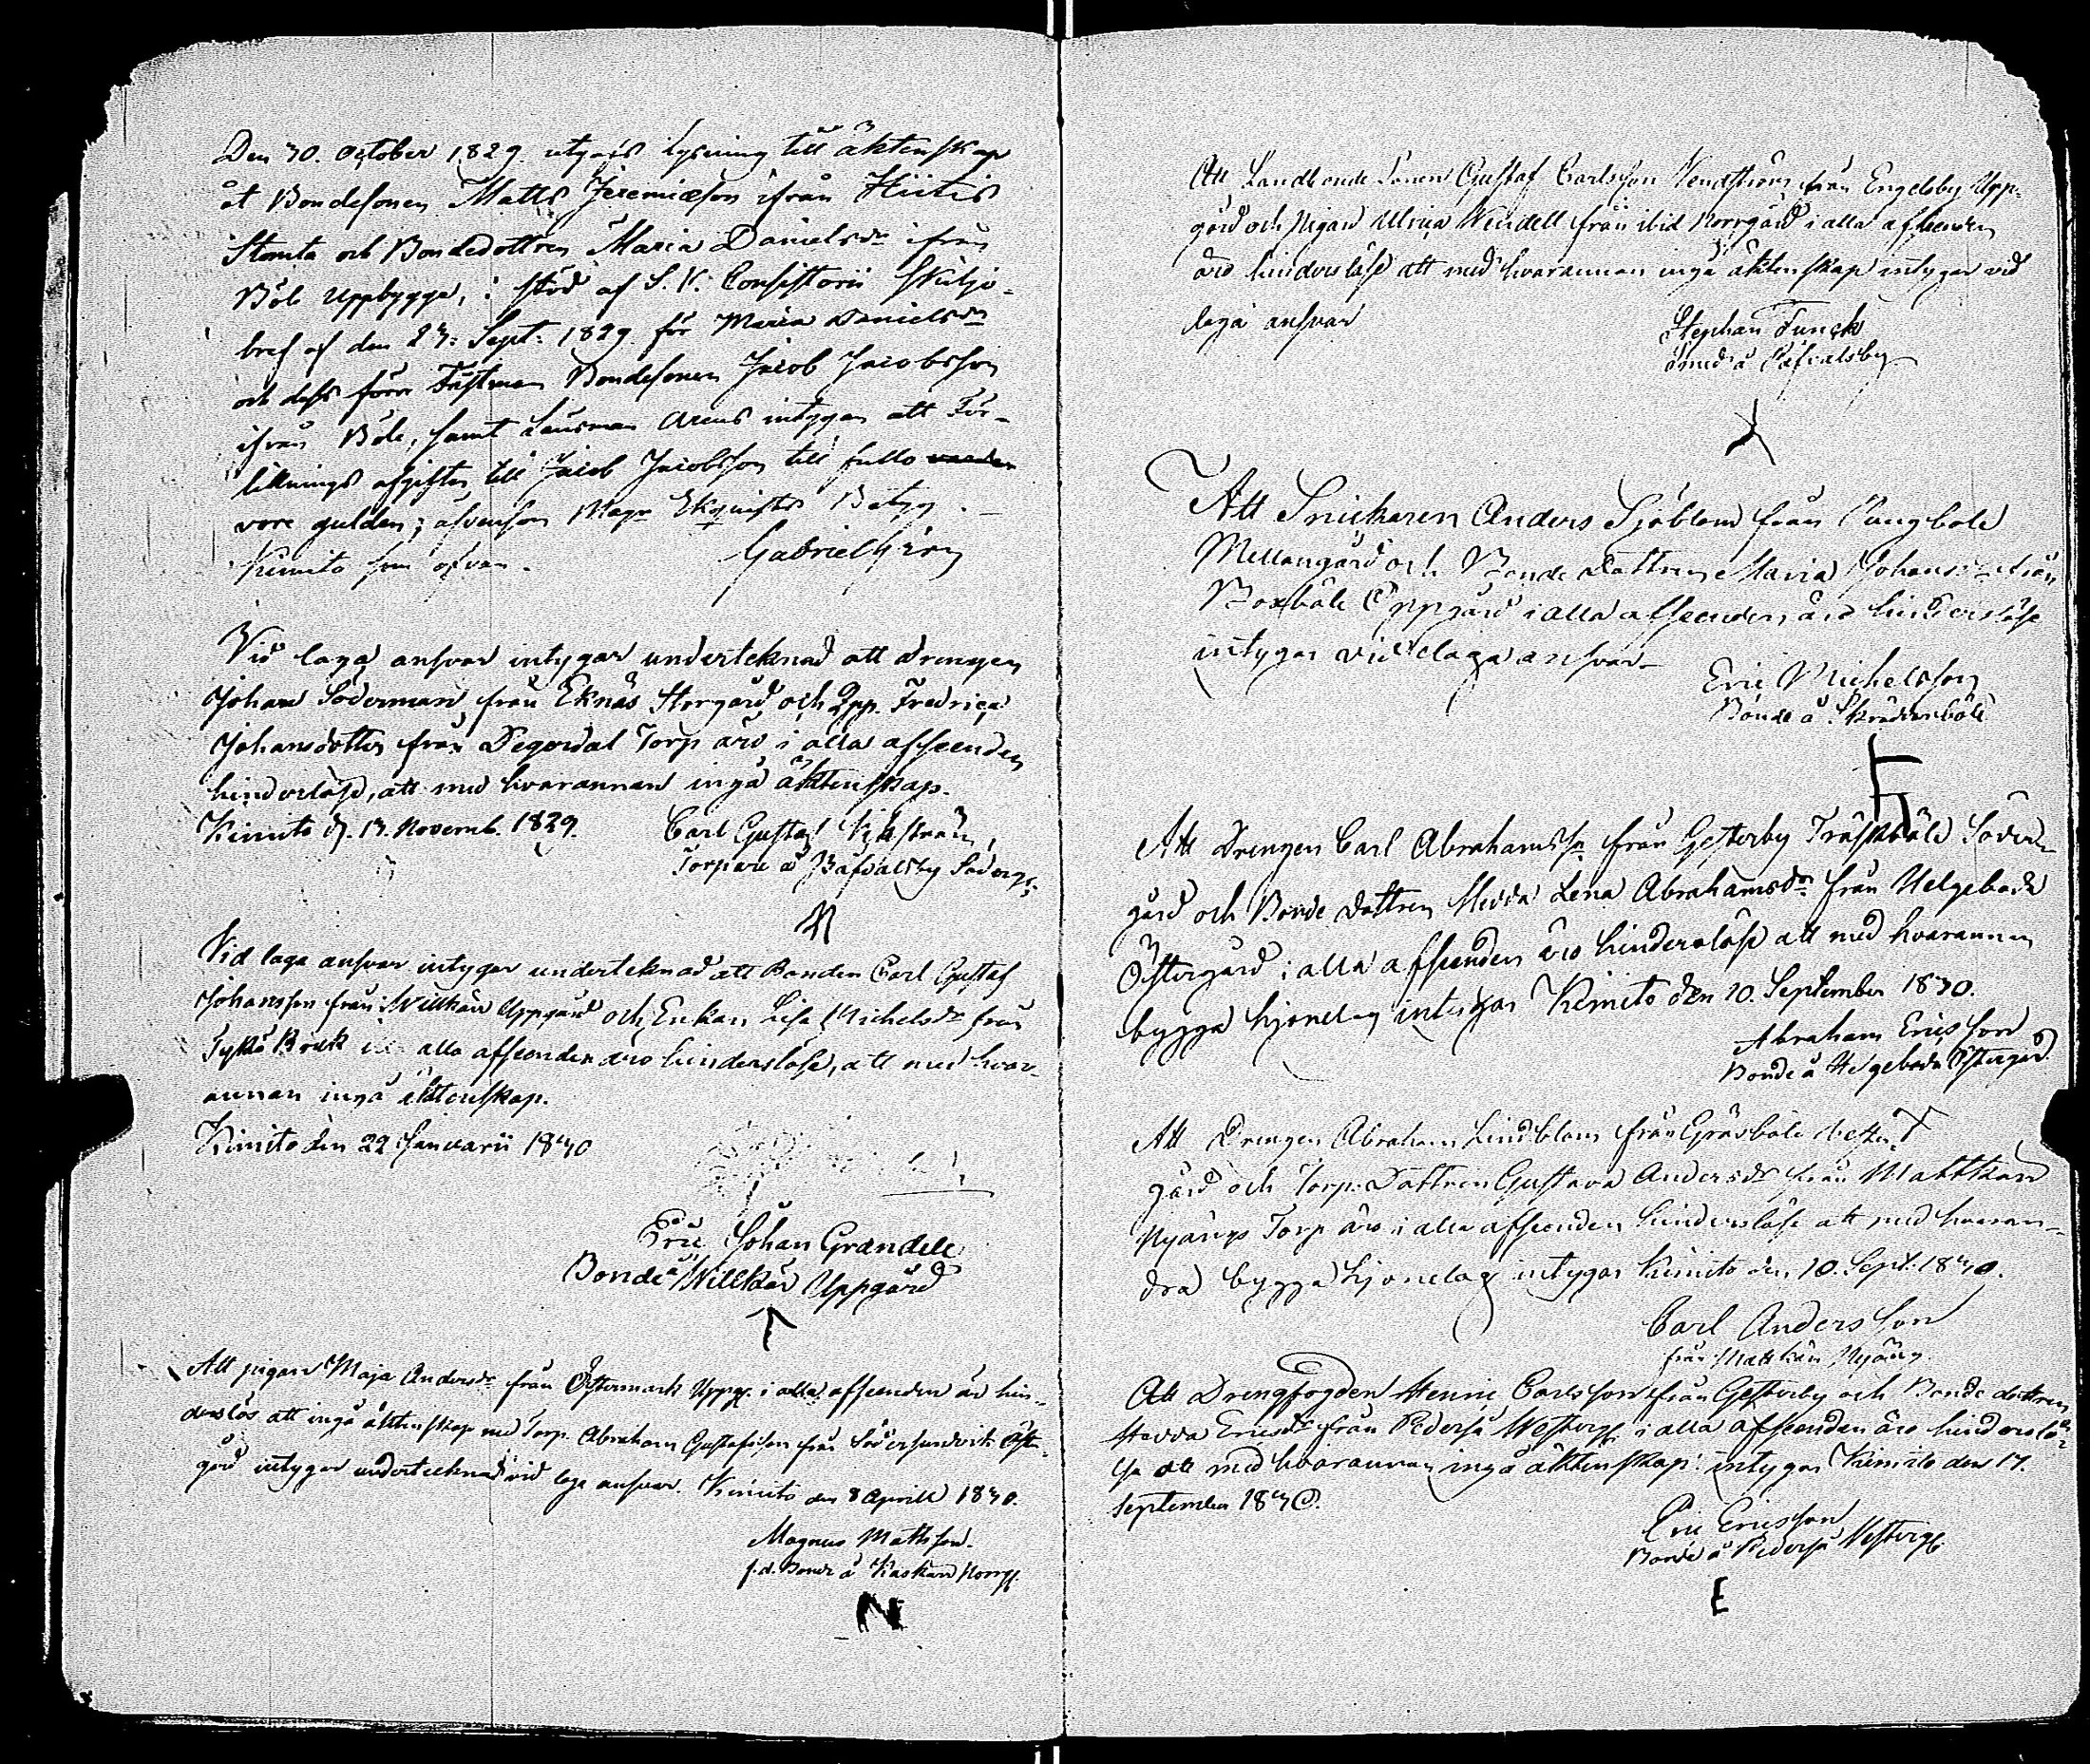 Den 30. October 1829 utgafs Lysning till äktenskap
åt Bondesonen Matts Jeremiæson ifrån Hiitis
och Bondedottren Maria Danielsdr ifrån
Böle Uppbygge, i stöd af S. V. Consistorii Skiljo-
bref af den 23: Sept: 1829 för Maria Danielsdr
och dess förre Fästman Bondesonen Jacob Jacobsson
ifrån Böle, samt Länsman intygan att För-
liknings afgiften till Jacob Jacobsson till fullo
vore gulden; äfvensom Magr Ekqvists Betyg.
Kimito som ofvan.
Vid laga ansvar intygar undertecknad att drengen
Johan Söderman från Eknäs Storgård och Fredrica
Johansdotter från Degerdal Torp äro i alla afseenden
hinderslöse, att med hvarannan ingå äktenskap.
Kimito d. 13. Novemb. 1829.
Carl Gustaf
Torpare å Båfvalsby Söderg:
Vid laga ansvar intygar underteknad att Bonden Carl Gustaf
Johansson från Willkär Uppgård och Enkan Lisa Michelsdr från
Tykö Bruk i alla afseenden äro hinderslöse, att med hvar-
annan ingå äktenskap.
Kimito den 22 Januarii 1830
Eric Johan Grandell
Bonde å Willkär Uppgård
Att pigan Maja Andersdr från Östermark Uppg. i alla afseenden är hin-
derslös att ingå äktenskap med Torp. Abraham Gustafsson från Södersundvik Öster-
gård intygar undertecknad vid laga ansvar. Kimito den 8 Aprill 1830.
Magnus Mattsson.
f.d. Bonde å Kaskan Norrg.
N
Att Landbonde Sonen Gustaf Carlsson från Engelsby Upp-
gård och Pigan Ulrica Wendell från ibid Norrgård i alla afseenden
äro hinderslöse att med hvarannan ingå äktenskap intygar vid
laga ansvar
Stephan Funck
Smed å Båfvalsby
Att Snickaren Anders Sjöblom från Långböle
Mellangård och Bonde Dottren Maria Johansdr från
Boxböle Oppgård i alla afseenden äro hinderslöse
intygar vid laga ansvar
Eric Michelsson
Bonde å Skräddarböle
Att Drengen Carl Abrahamsson från Gesterby Träskböle Söder-
gård och Bonde Dottren Hedda Lena Abrahamsdr från Helgeboda
Östergård i alla afseenden äro hinderslöse att med hvarannan
bygga hjonelag intygar Kimito den 10. September 1830.
Abraham Ericsson
Bonde å Helgeboda Östergård
Att Drengen Abraham Lindblom från Gräsböle Vester
gård och Torp. Dottren Gustava Andersdr från Mattkärr
Nyängs Torp äro i alla afseenden hinderslöse att med hvaran-
dra bygga hjonelag intygar Kimito den 10. Sept. 1830.
Carl Andersson
från Mattkärr Nyäng.
Att Drengfogden Henric Carlsson från Gesterby och Bonde dottren
Hedda Ericsdr från Pederså Westerg. i alla afseenden äro hinderslö-
se att med hvarannan ingå äktenskap intygar Kimito den 17.
September 1830.
Eric Ericsson
Bonde å Pederså Westerg.
E